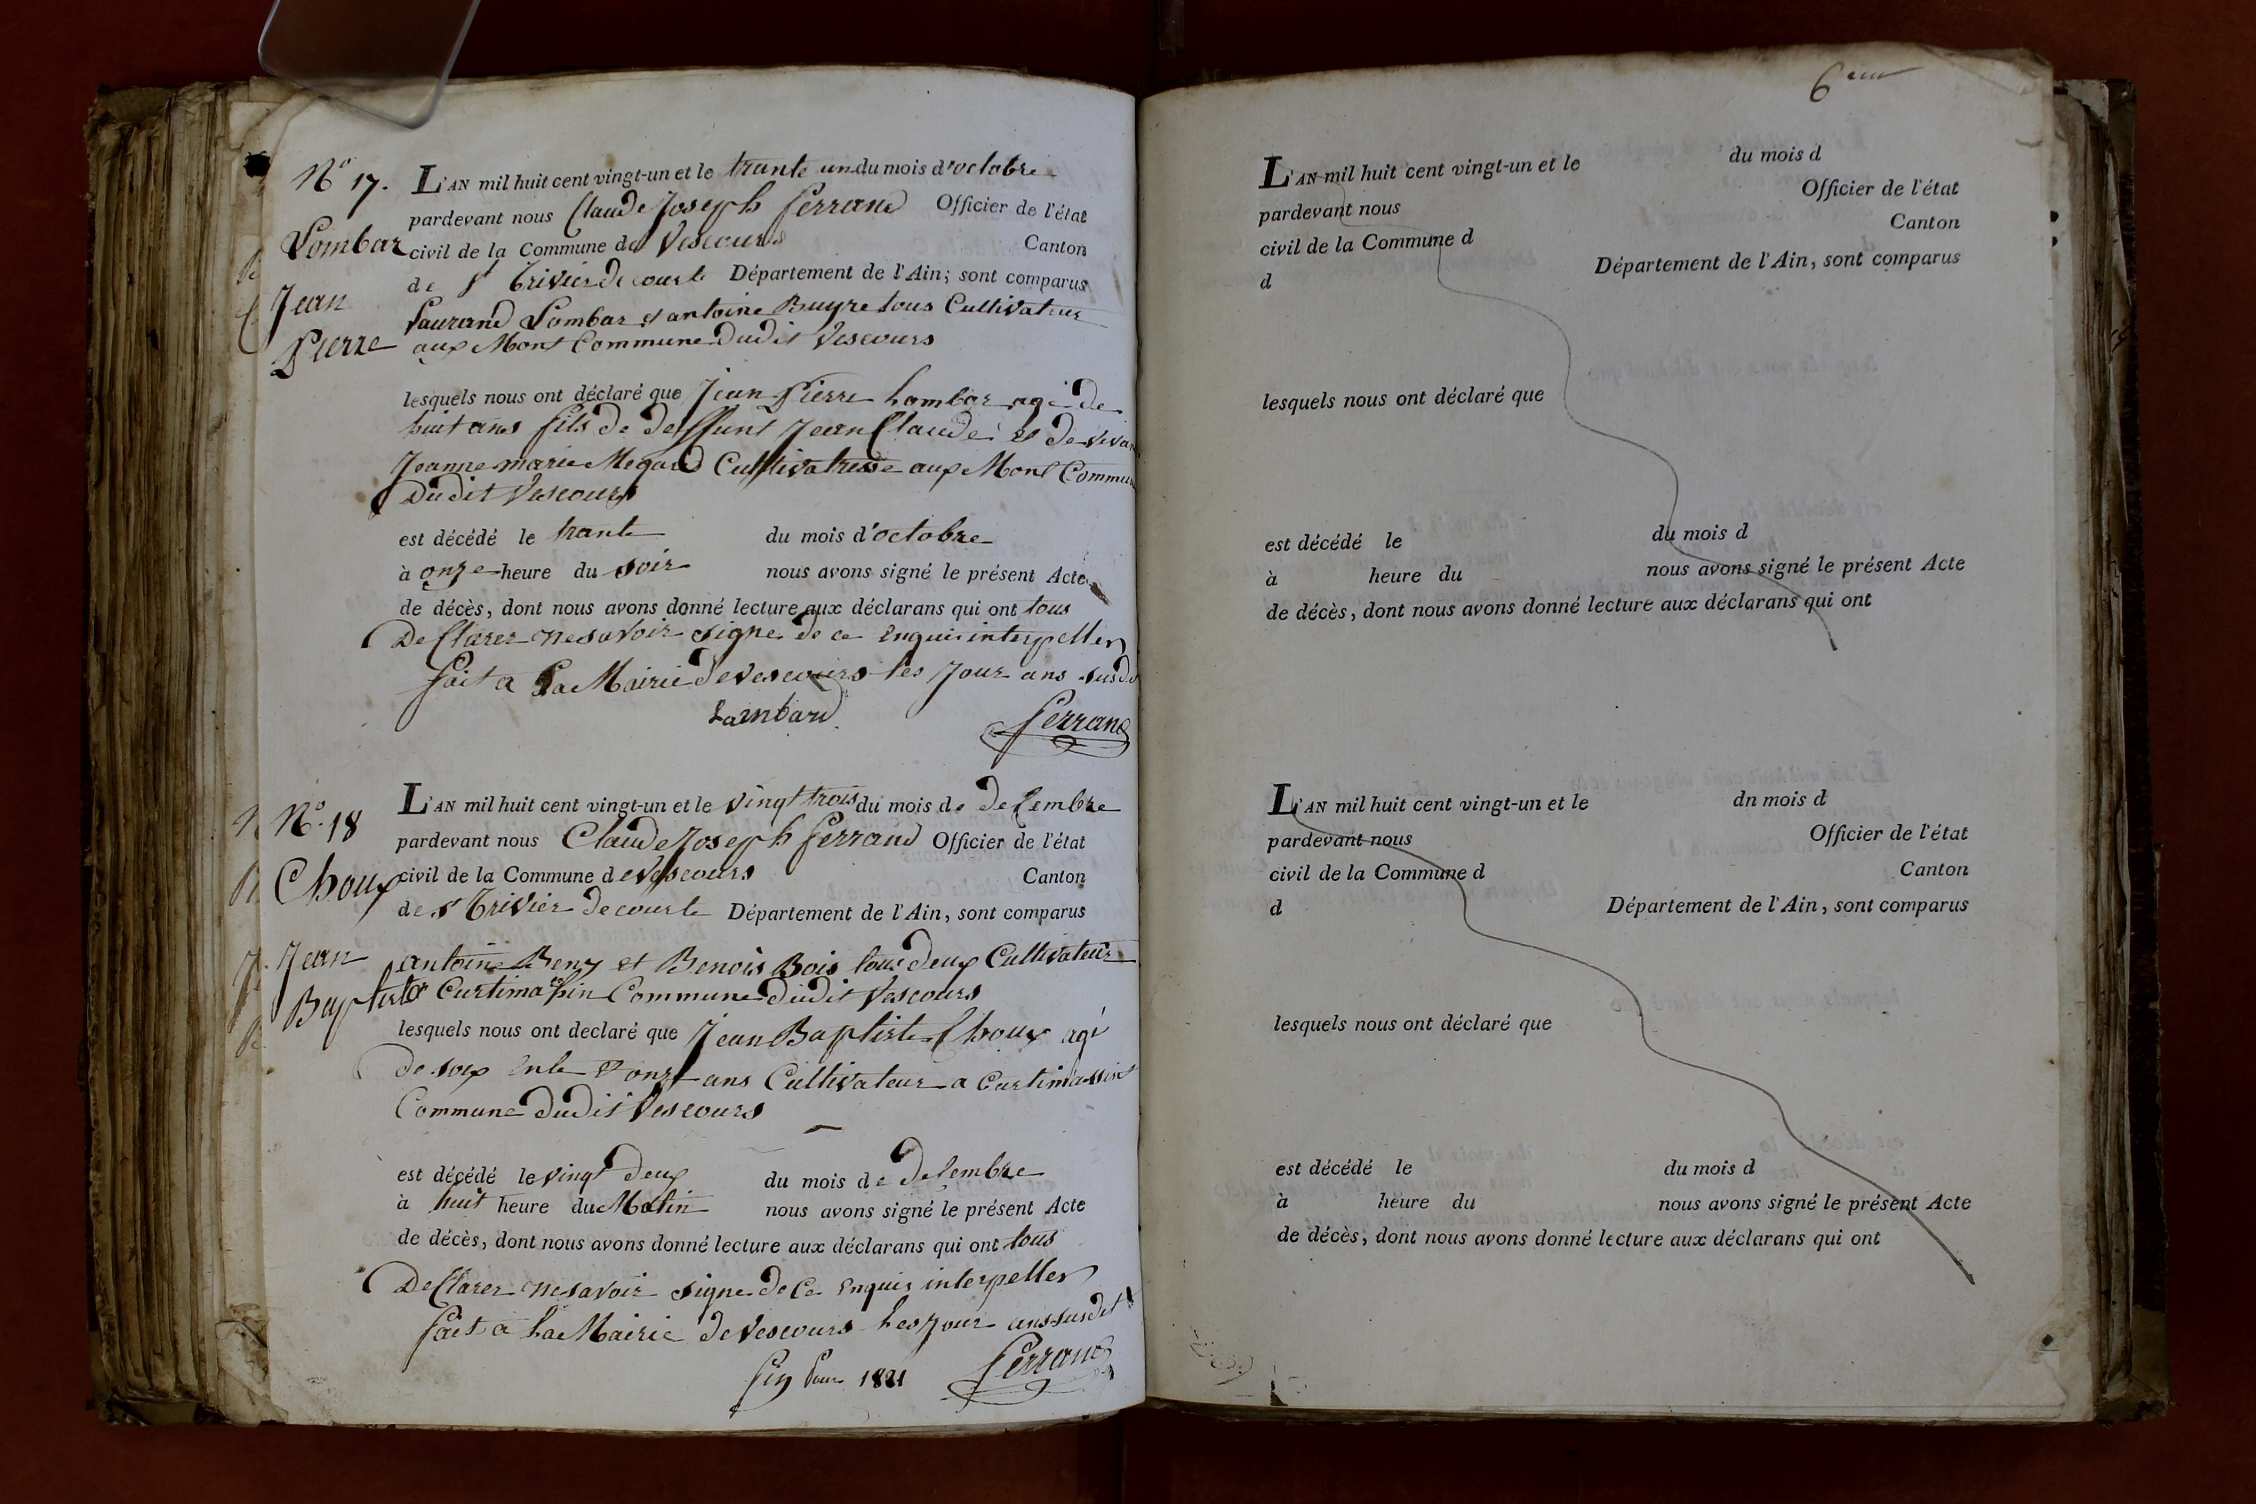 N° 17.
Lombar
Jean
Pierre
L'AN mil huit cent vingt-un et le trante un du mois d'octobre
pardevant nous Claude Joseph ferrand Officier de l'état
civil de la Commune de Vescours Canton
de st trivier de courte Département de l'Ain; sont comparus
Laurand Lombar et antoine Buyre tous Cultivateur
aux Mont Commune dudit Vescours
lesquels nous ont déclaré que Jean Pierre Lombar agé de
huit ans fils de deffunt Jean Claude et de vivan
Jeanne marie Megard Cultivatresse aux Mont Commun
dudit Vescours
est décédé le trante du mois d'octobre
à onze heure du soir nous avons signé le présent Acte
de décès, dont nous avons donné lecture aux déclarans qui ont tous
declarer ne savoir signe de ce Enquis interpeller
fait a La Mairie de vescours les Jour ans susdi
Lambard
ferrand
N°. 18
Choux
Jean
Baptiste
L'AN mil huit cent vingt-un et le vingt trois du mois de decembre
pardevant nous Claude Joseph ferrand Officier de l'état
civil de la Commune de vescours Canton
de st trivier de courte Département de l'Ain, sont comparus
antoine Beny et Benois Bois tous deux Cultivateur
a Commune dudit Vescours
lesquels nous ont declaré que Jean Baptiste Choux agé
de soix ente et onze ans Cultivateur a Curtimassin
Commune dudit Vescours
est décédé le vingt deux du mois de decembre
à huit heure du Matin nous avons signé le présent Acte
de décès, dont nous avons donné lecture aux déclarans qui ont tous
declarer ne savoir signe de ce Enquis interpeller
fait a La Mairie de vescours les jour ans susdit
fin 1821
ferrand
6
L'AN mil huit cent vingt-un et le du mois d
pardevant nous Officier de l'état
civil de la Commune d Canton
d Département de l'Ain, sont comparus
lesquels nous ont déclaré que
est décédé le du mois d
à heure du nous avons signé le présent Acte
de décès, dont nous avons donné lecture aux déclarans qui ont
L'AN mil huit cent vingt-un et le dn mois d
pardevant nous Officier de l'état
civil de la Commune d Canton
d Département de l'Ain, sont comparus
lesquels nous ont déclaré que
est décédé le du mois d
à heure du nous avons signé le présent Acte
de décès, dont nous avons donné lecture aux déclarans qui ont